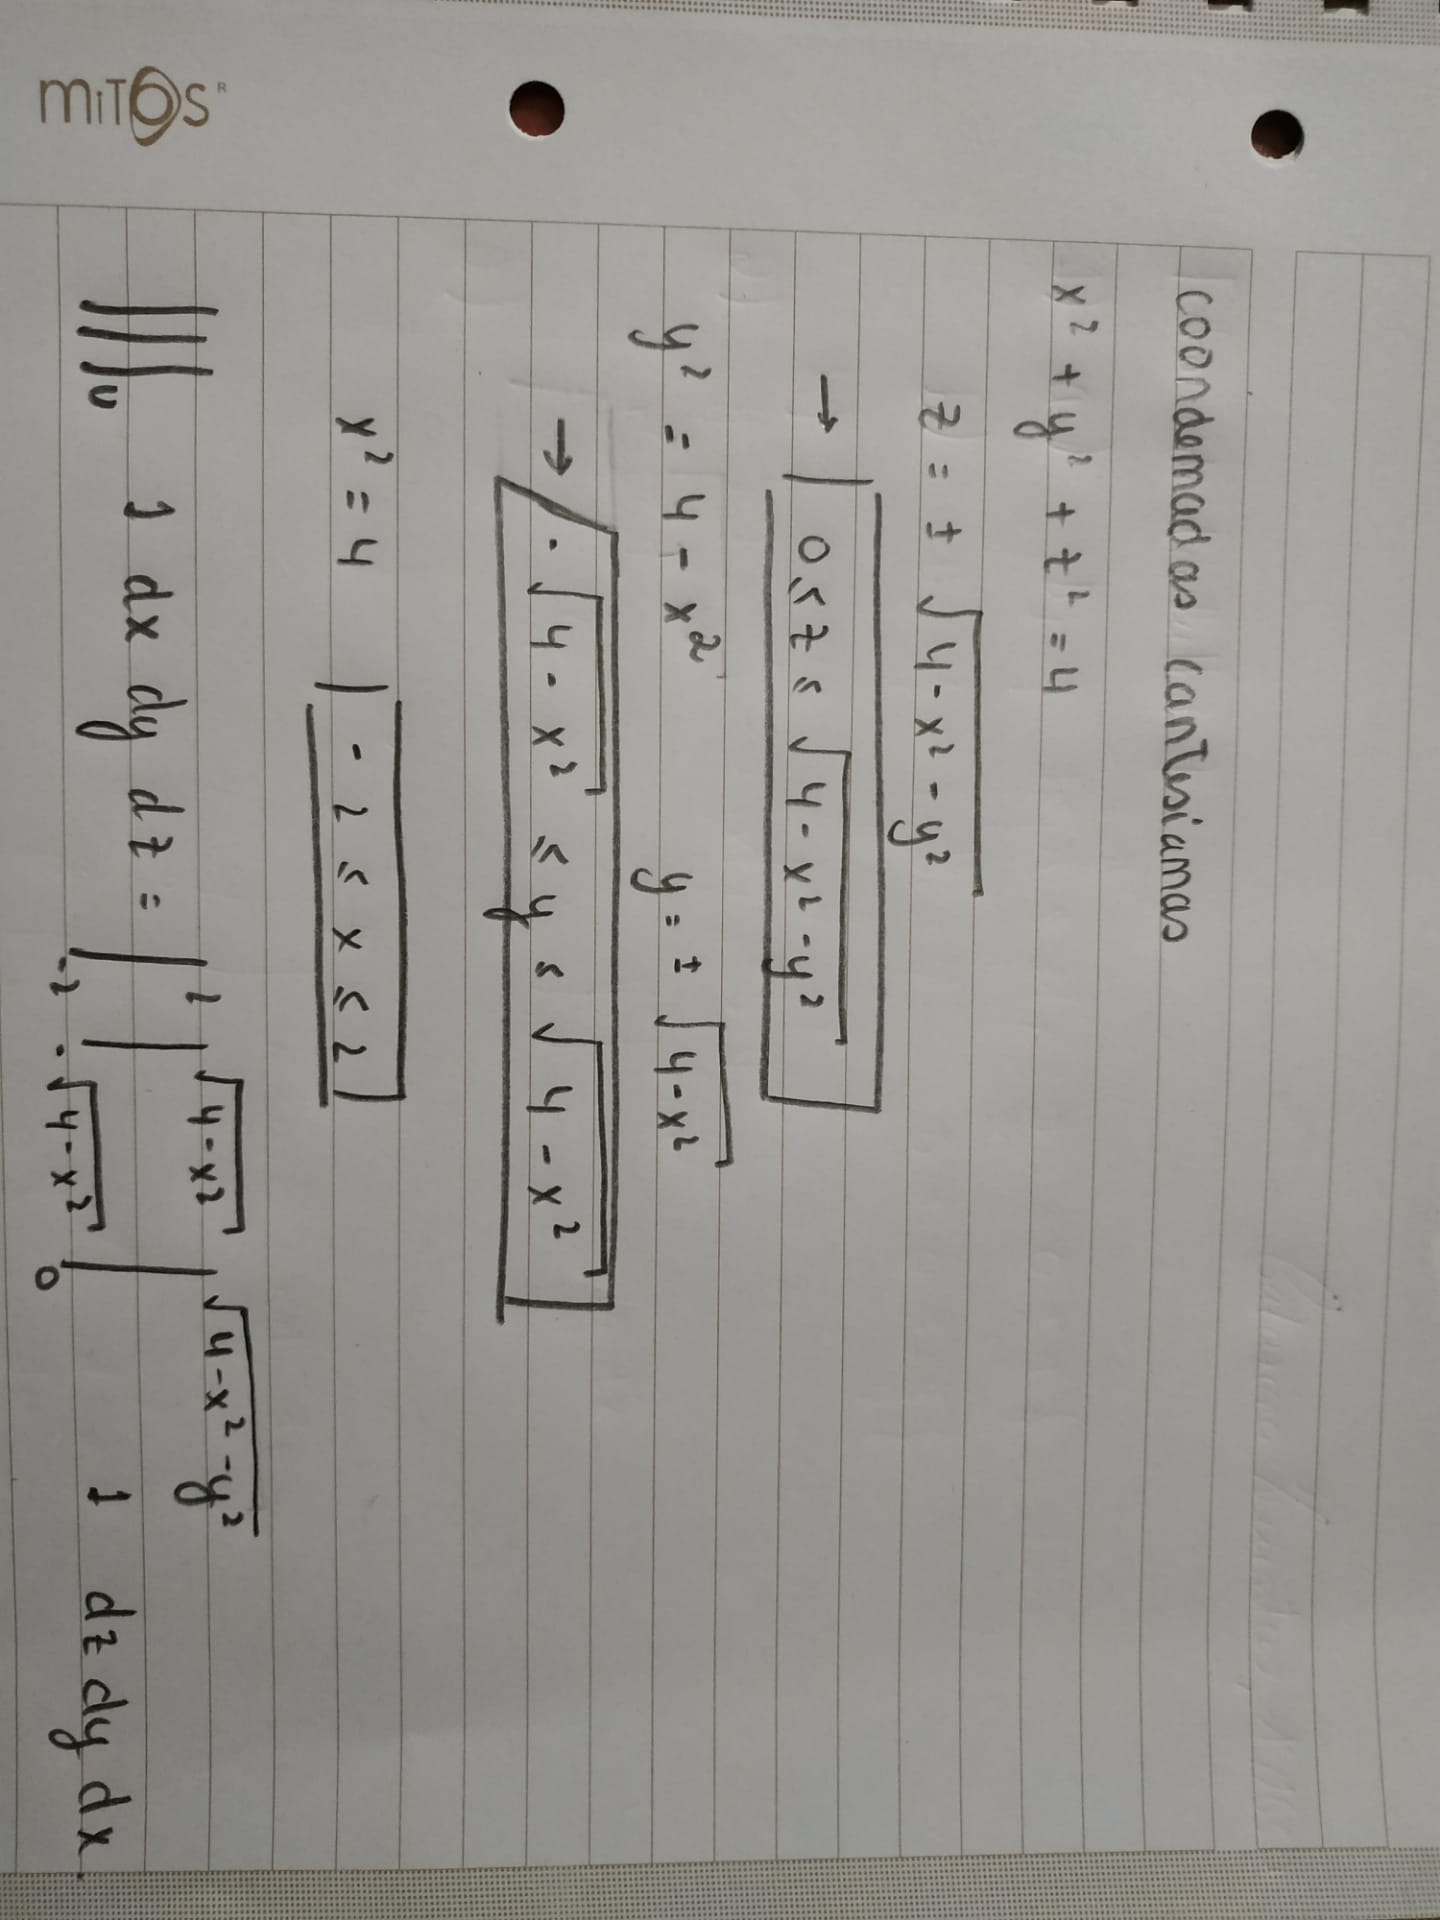 mitos®
coordenadas cartesianas
x² + y² + z² = 4
z = ± √4-x²-y²
→ 0 ≤ z ≤ √4-x²-y²
y² = 4 - x² y = ± √4-x²
→ -√4-x² ≤ y ≤ √4-x²
x² = 4 -2 ≤ x ≤ 2
∭υ 1 dx dy dz = ∫₋₂² ∫_{-√4-x²}^{√4-x²} ∫₀^{√4-x²-y²} 1 dz dy dx